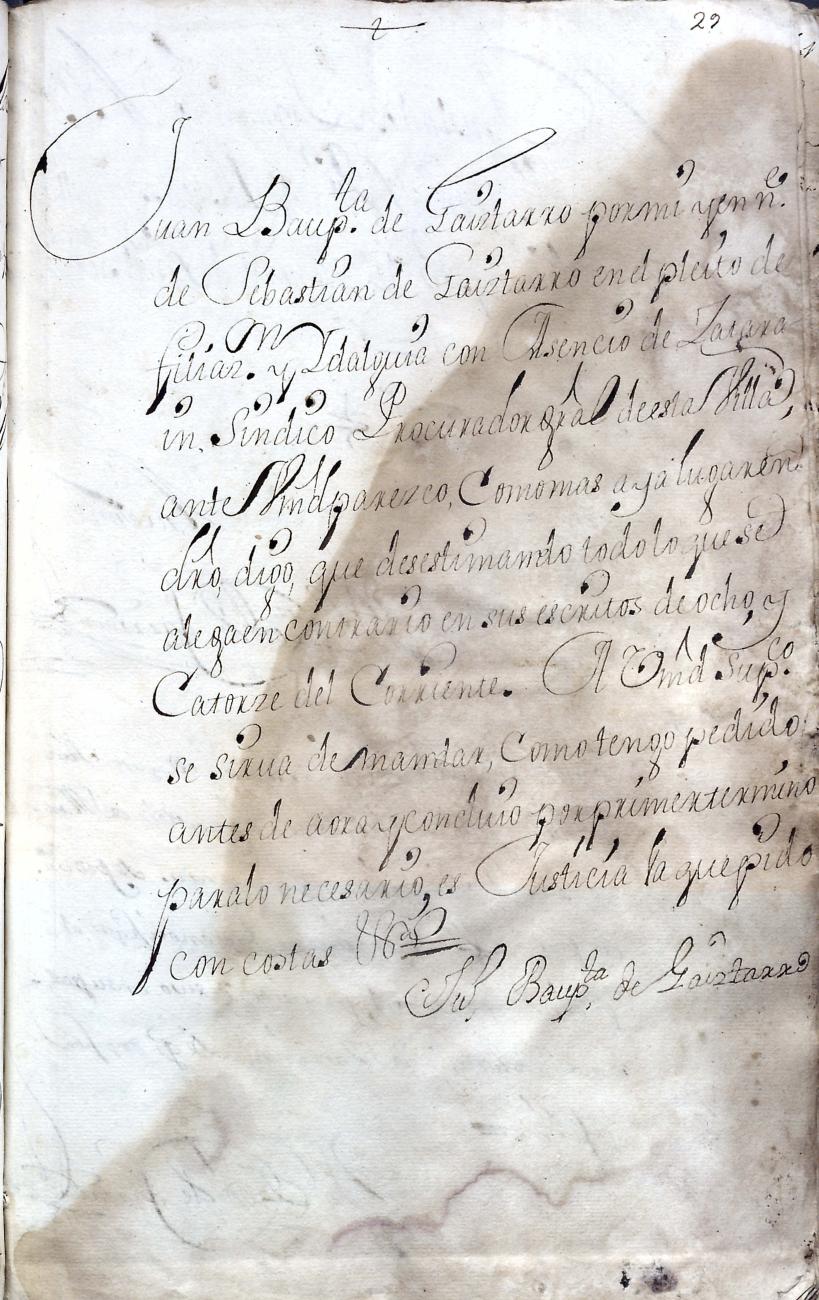 29
Juan Baup.ta de Gaiztarro por mi y en n.e
de Sebastian de Gaiztarro en el pleito de
filiaz.n y Idalguia con Asencio de Zatara
in. Sindico Procurador gral de esta Villa,
ante Vmd parezco, Como mas aya lugar en
dro, digo, que desestimando todo lo que se
alega en contrario en sus escritos de ocho, y
Catorze del Corriente. A Vmd Sup.co
se sirua de mandar, Como tengo pedido
antes de aora y concluio por primer termino
para lo necesario, es Justicia la que pido
con costas &.a
Ju.n Baup.ta de Gaiztarro